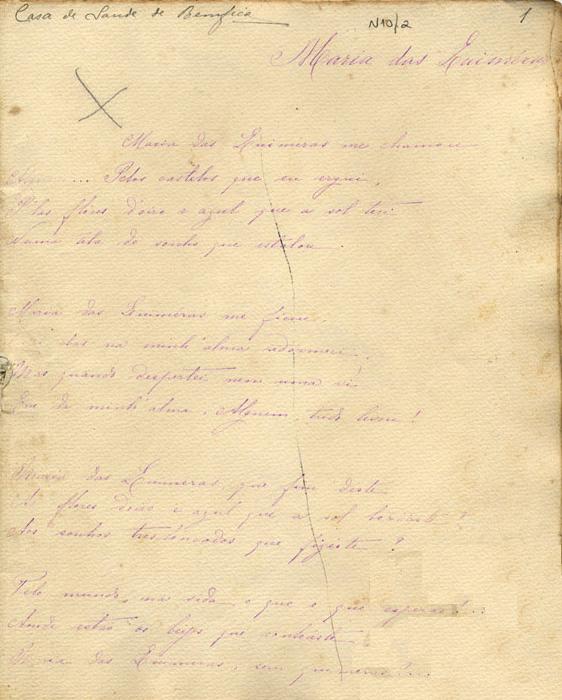 Casa de Saude de Bemfica
N10/2
1
Maria das Quimeras
Maria das Quimeras me chamou
... Pelos castelos que eu ergui,
P'las flores d'oiro e azul que a sol teci
Numa tela de sonho que estalou.
Maria das Quimeras me ficou
na minh'alma adormeci.
Mas quando despertei nem uma vi
Que da minh'alma, Alguem, tudo levou!
Maria das Quimeras, que fim deste
Às flores d'oiro e azul que a sol bordaste?
Aos sonhos tresloucados que fizeste?
Pelo mundo, na vida, o que é que esperas?...
Aonde estão os beijos que sonhaste
Maria das Quimeras, sem quimeras?...